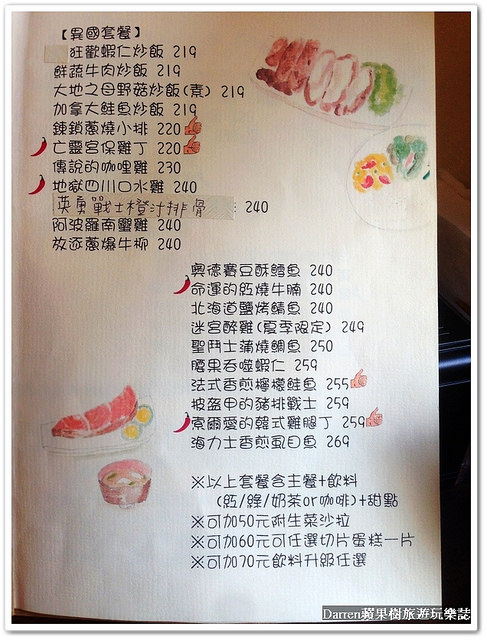 【異國套餐】
狂歡蝦仁炒飯 219
鮮蔬牛肉炒飯 219
大地之母野菇炒飯(素) 219
加拿大鮭魚炒飯 219
鍊鎖蔥燒小排 220
亡靈宮保雞丁 220
傳說的咖哩雞 230
地獄四川口水雞 240
英勇戰士橙汁排骨 240
阿波羅南蠻雞 240
放逐蔥爆牛柳 240
奧德賽豆酥鱈魚 240
命運的紅燒牛腩 240
北海道鹽烤鯖魚 240
迷宮醉雞(夏季限定) 249
聖鬥士蒲燒鯛魚 250
腰果吞噬蝦仁 259
法式香煎檸檬鮭魚 255
披盔甲的豬排戰士 259
索爾愛的韓式雞腿丁 259
海力士香煎虱目魚 269
※以上套餐含主餐+飲料
(紅/綠/奶茶or咖啡)+甜點
※可加50元附生菜沙拉
※可加60元可任選切片蛋糕一片
※可加70元飲料升級任選
Darren蘋果樹旅遊玩樂誌